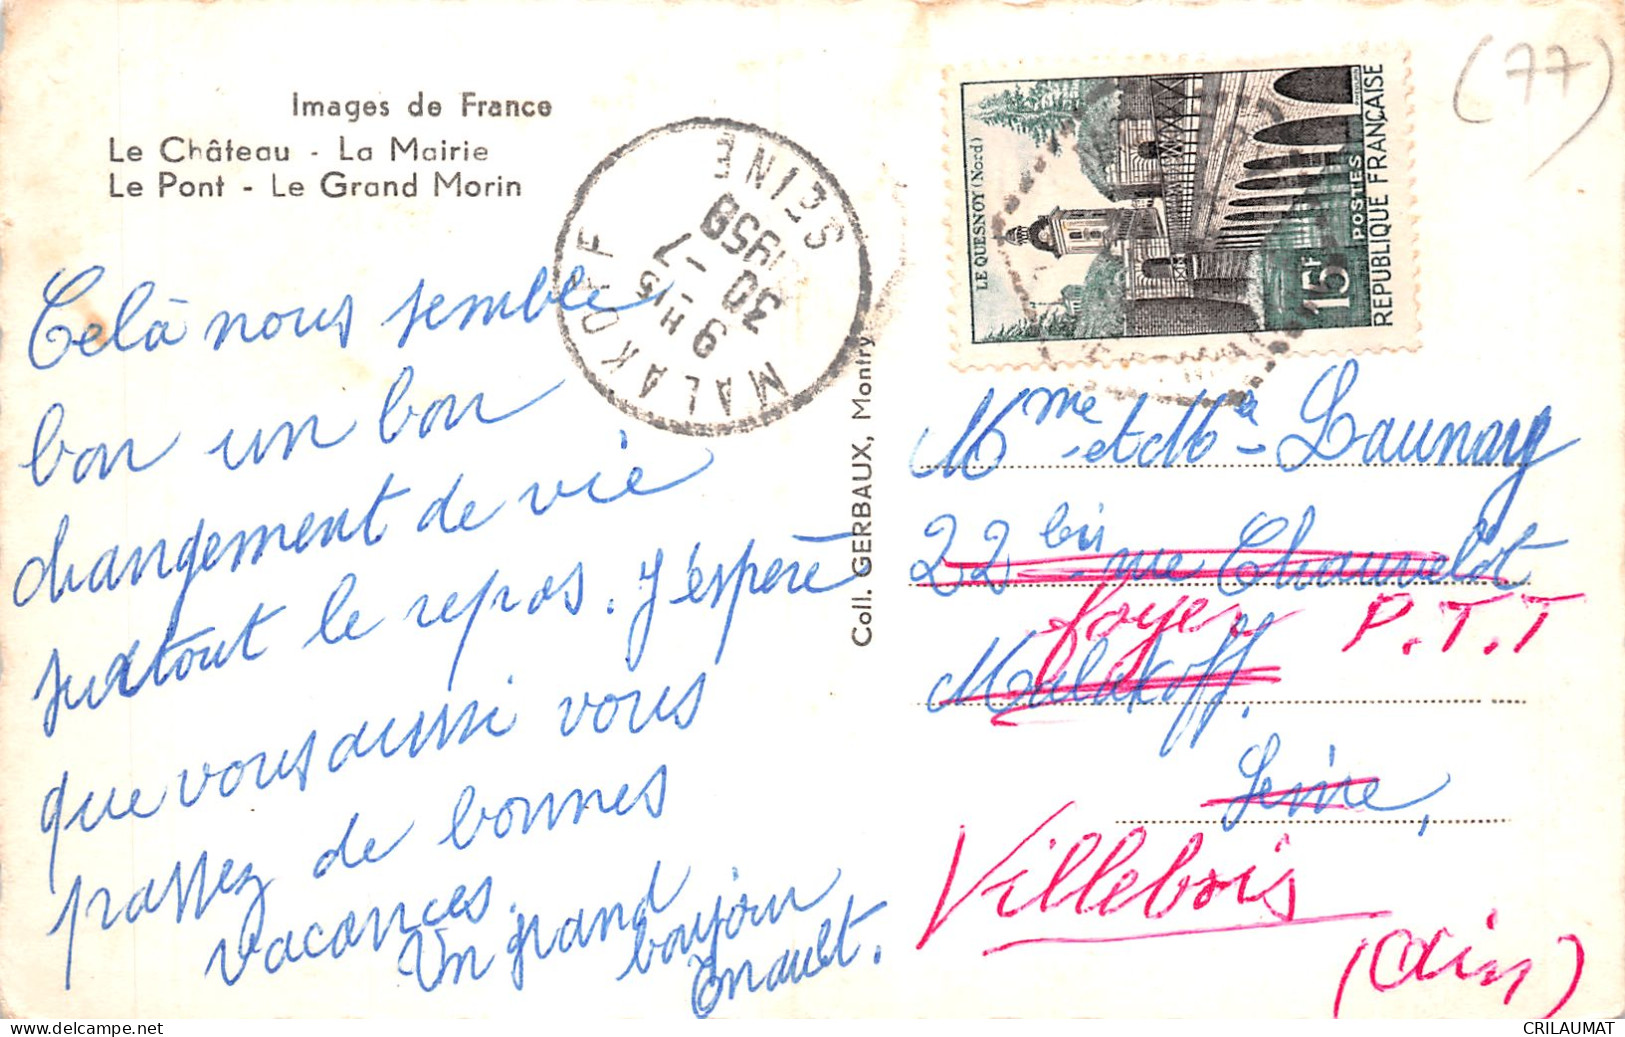 Images de France
Le Château - La Mairie
Le Pont - Le Grand Morin
Celà nous semble
bon un bon
changement de vie
surtout le repos. J'espère
que vous aussi vous
passez de bonnes
vacances.
Un grand
bonjour
Enault.
MALAKOFF
SEINE
9 H 15
30 - 7
1958
Coll. GERBAUX, Montry
LE QUESNOY (Nord)
15F
POSTES
REPUBLIQUE FRANÇAISE
(77)
Mme et Mr Launay
22 bis rue Chauvelot
foyer P.T.T
Malakoff.
Seine,
Villebois
(Ain)
CRILAUMAT